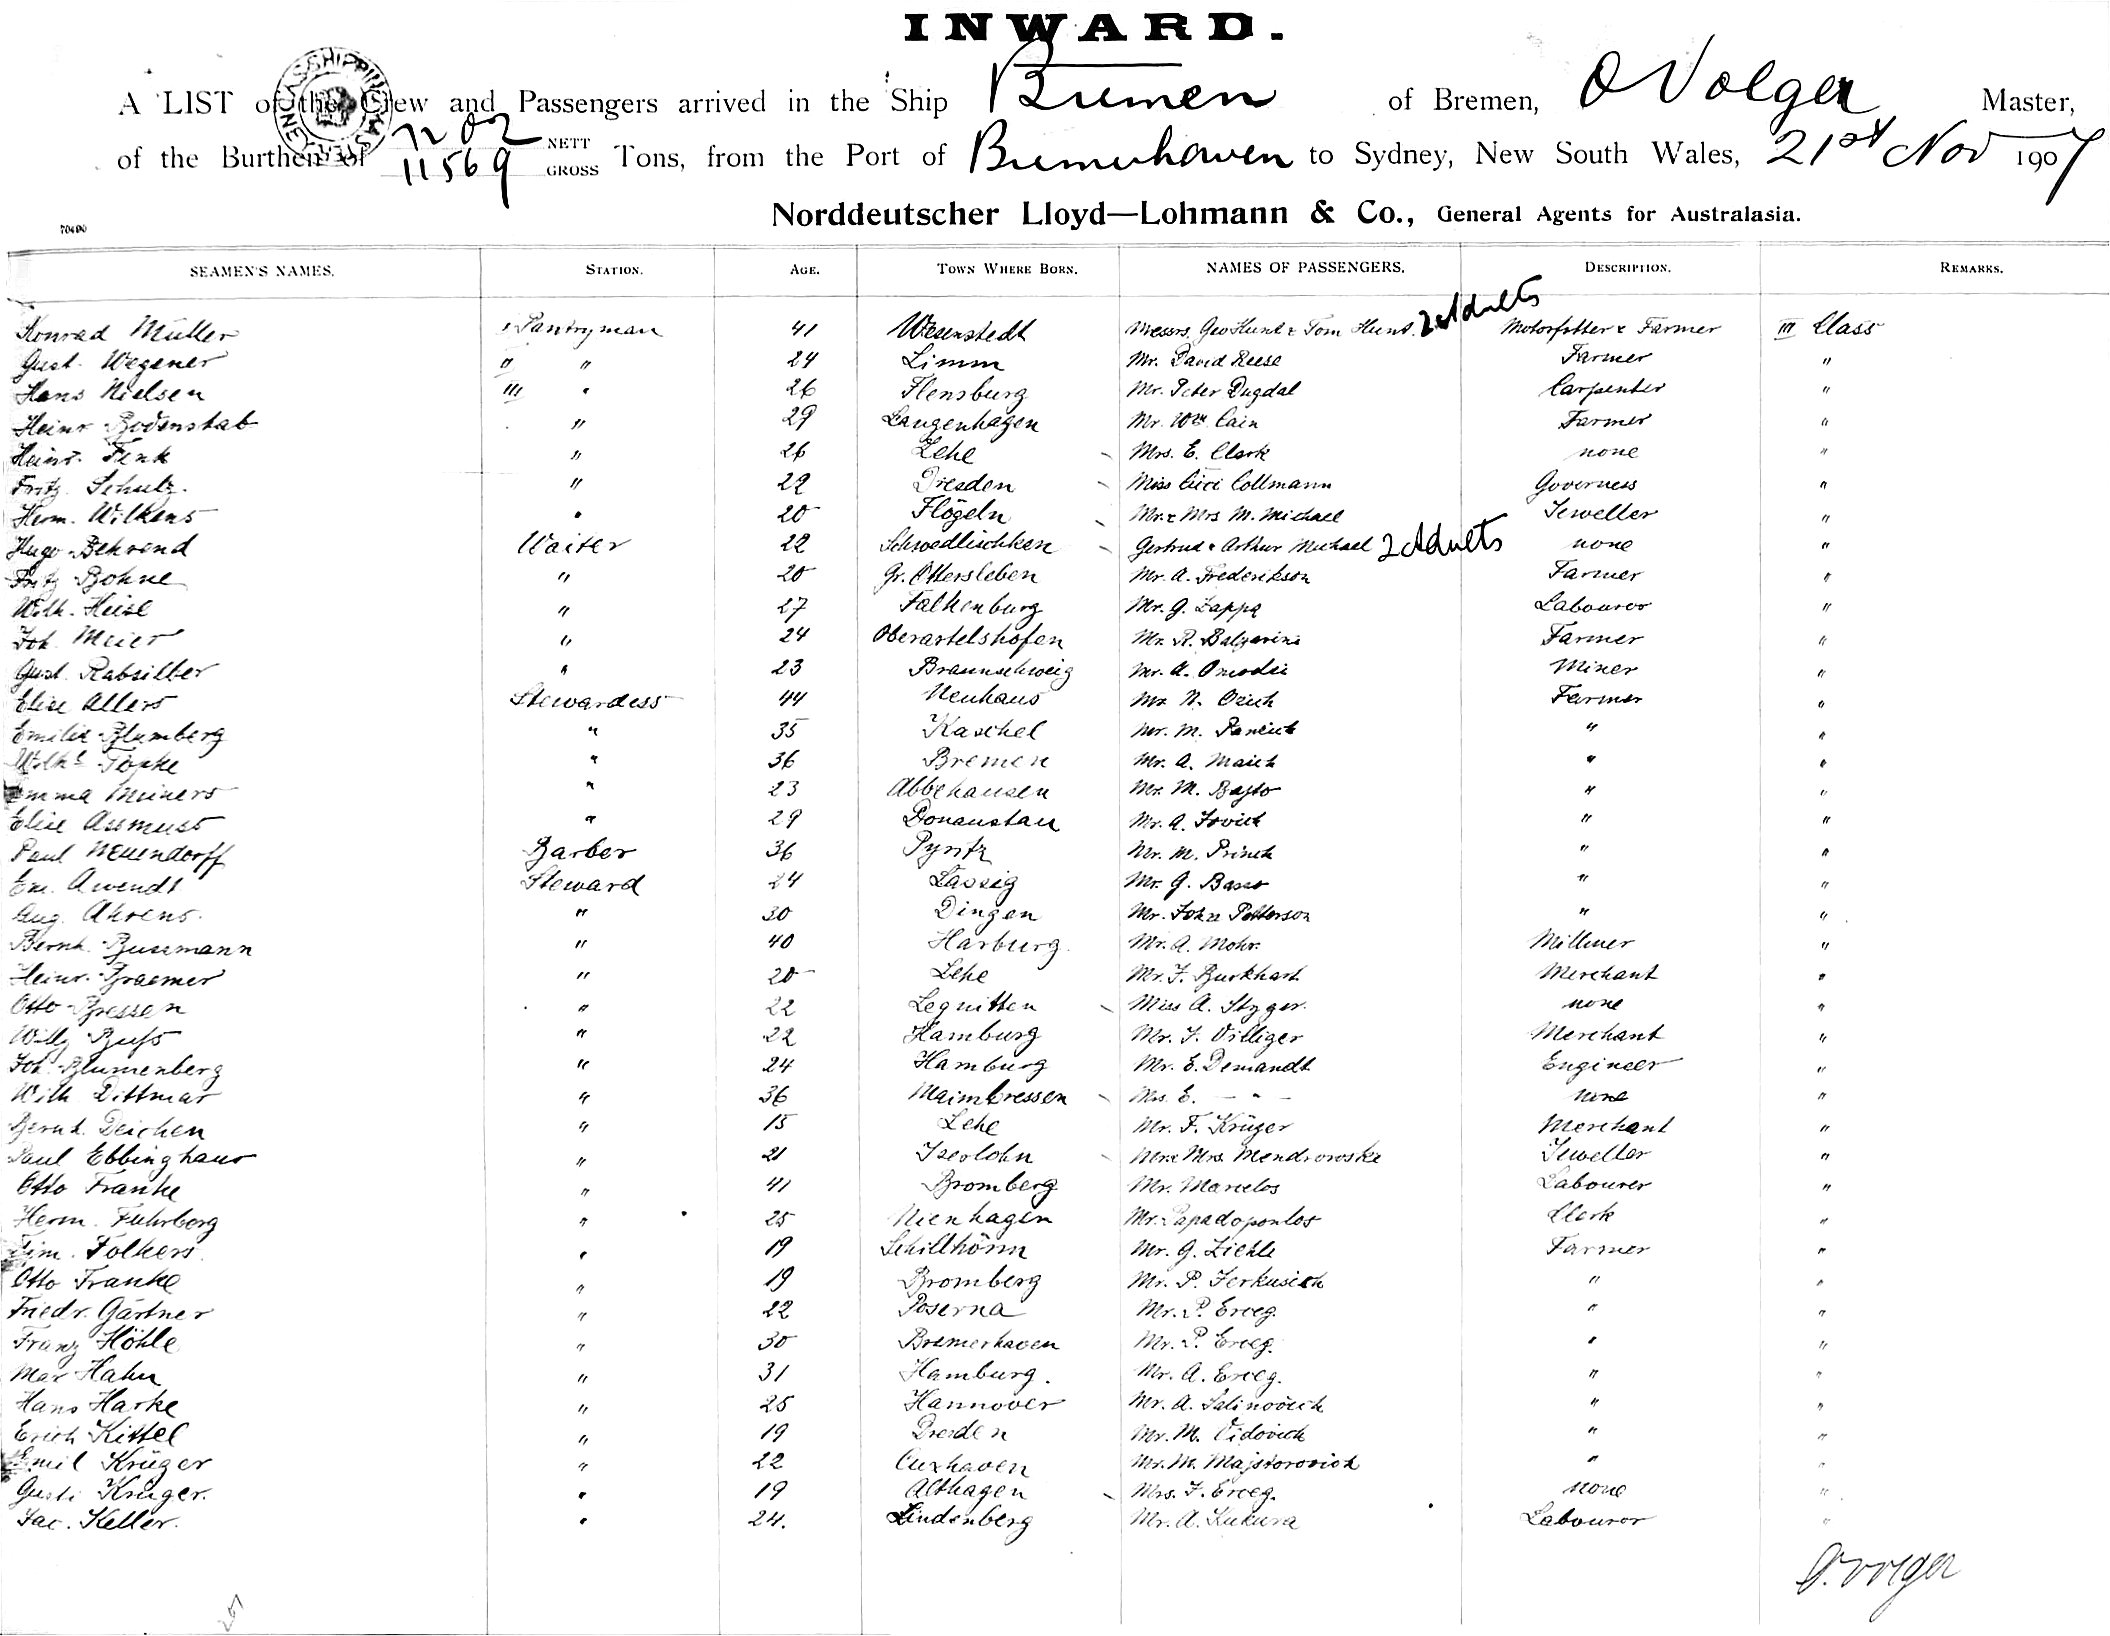 INWARD.
A LIST of the Crew and Passengers arrived in the Ship Bremen of Bremen, O Volger Master,
of the Burthen of 7202 NETT 11569 GROSS Tons, from the Port of Bremerhaven to Sydney, New South Wales, 21st Nov 1907
Norddeutscher Lloyd—Lohmann & Co., General Agents for Australasia.
70400
SEAMEN'S NAMES. STATION. AGE. TOWN WHERE BORN. NAMES OF PASSENGERS. DESCRIPTION. REMARKS.
Konrad Müller I Pantryman 41 Wesenstedt Messrs. Geo Hunt & Tom Hunt. 2 Adults Motorfitter & Farmer III Class
Gust. Wegener II " 24 Limm Mr. David Reese Farmer "
Hans Nielsen III " 26 Flensburg Mr. Peter Dugdal Carpenter "
Heinr. Bodenstab " 29 Langenhagen Mr. Wm Cain Farmer "
Heinr. Fenk " 26 Lehe Mrs. E. Clark none "
Fritz Schulz. " 22 Dresden Miss Cilei Collmann Governess "
Herm. Wilkens " 20 Flögeln Mr. & Mrs M. Michael Jeweller "
Hugo Behrend Waiter 22 Schwedlischken Gertrud & Arthur Michael 2 Adults none "
Fritz Bohne " 20 Gr. Ottersleben Mr. A. Frederikson Farmer "
Wilh. Heise " 27 Falkenburg Mr. G. Zappa Labourer "
Joh. Meier " 24 Oberartelshofen Mr. R. Balzarini Farmer "
Gust. Rabsilber " 23 Braunschweig Mr. A. Omodei Miner "
Elise Allers Stewardess 44 Neuhaus Mr. N. Ozich Farmer "
Emilie Blumberg " 35 Kaschel Mr. M. Pancich " "
Wilhe Töpke " 36 Bremen Mr. A. Maich " "
Emma Meiners " 23 Abbehausen Mr. M. Bajlo " "
Elise Assmuss " 29 Donaustau Mr. A. Jovich " "
Paul Neuendorff Barber 36 Pyritz Mr. M. Princh " "
Em. Awendt Steward 24 Lassig Mr. G. Basso " "
Aug. Ahrens. " 30 Dingen Mr. John Petterson " "
Bernh. Bussmann " 40 Harburg. Mr. A. Mohr. Milliner "
Heinr. Braemer " 20 Lehe Mr. F. Burkhart Merchant "
Otto Bressen " 22 Lequitten Miss A. Styger. none "
Willy Bufs " 22 Hamburg Mr. J. Villiger Merchant "
Joh. Blumenberg " 24 Hamburg Mr. E. Demandt Engineer "
Wilh Dittmar " 36 Maimbressen Mrs. E. — " — none "
Bernh. Deichen " 15 Lehe Mr. F. Krüger Merchant "
Paul Ebbinghaus " 21 Iserlohn Mr & Mrs. Mendrowski Jeweller "
Otto Franke " 41 Bromberg Mr. Marcelos Labourer "
Herm. Fuhrberg " 25 Nienhagen Mr. Papadopoulos Clerk "
Folkers " 19 Schillhörn Mr. G. Ziehle Farmer "
Otto Franke " 19 Bromberg Mr. P. Jerkusich " "
Friedr. Gärtner " 22 Poserna Mr. P. Erceg. " "
Franz Höhle " 30 Bremerhaven Mr. P. Erceg. " "
Max Hahn " 31 Hamburg. Mr. A. Erceg. " "
Hans Harke " 25 Hannover Mr. A. Salinovich " "
Erich Kittel " 19 Dresden Mr. M. Vidovich " "
Emil Krüger " 22 Cuxhaven Mr. M. Majstorovich " "
Gust. Krüger. " 19 Althagen Mrs. J. Erceg. none "
Jac. Keller. " 24. Lindenberg Mr. A. Kukura Labourer "
O. Volger